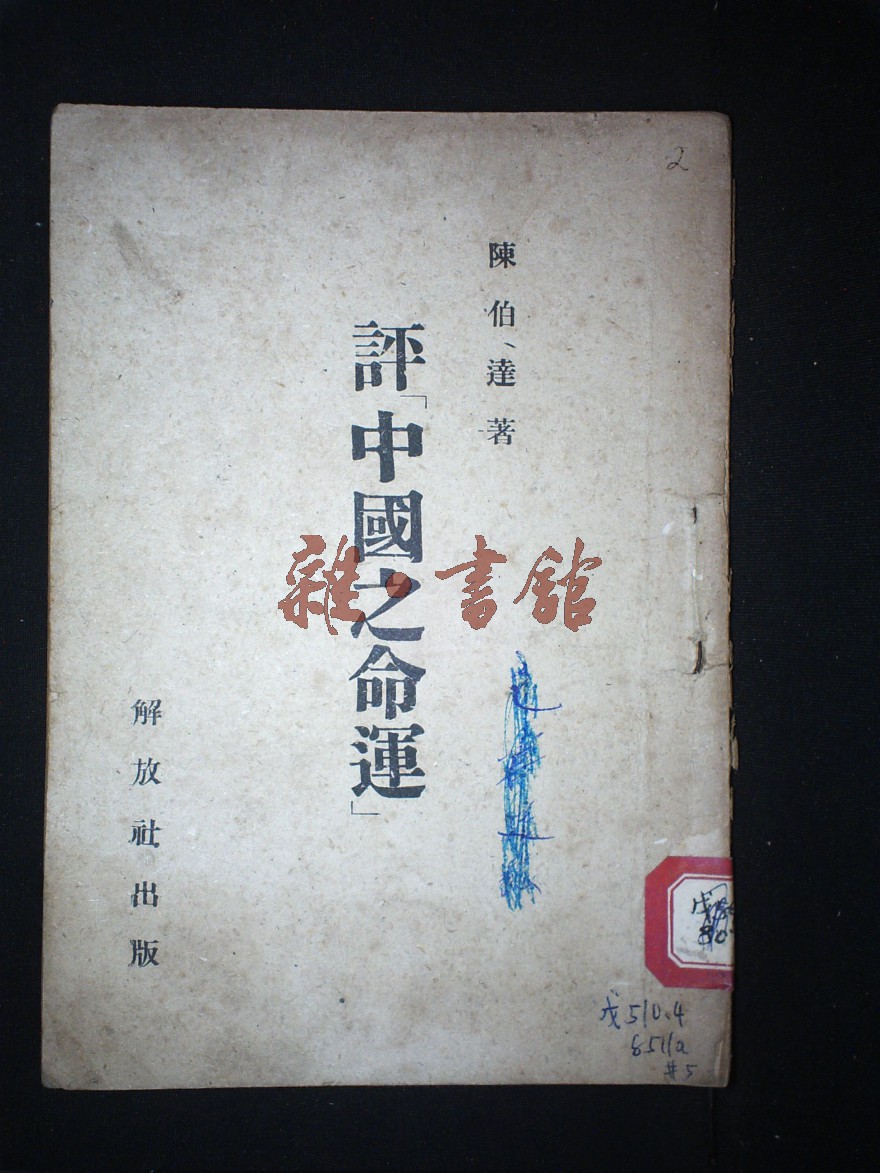 2
陳伯達著
評「中國之命運」
雜·書館
解放社出版
戊510.4
8511a
#5